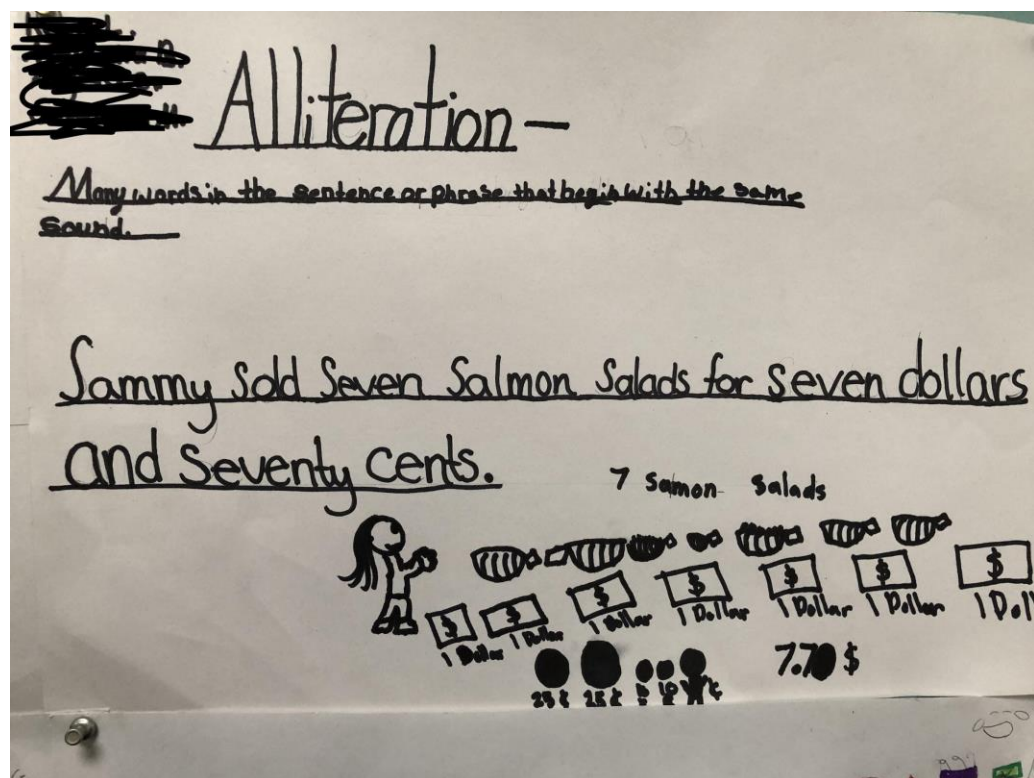 Alliteration-
Many words in the sentence or phrase that begin with the same
sound.
Sammy sold Seven Salmon Salads for seven dollars
and seventy cents.
7 samon salads
$ $ $ $ $ $ $
1 Dollar 1 Dollar 1 Dollar 1 Dollar 1 Dollar 1 Dollar 1 Doll
25¢ 25¢ 10
7.70 $